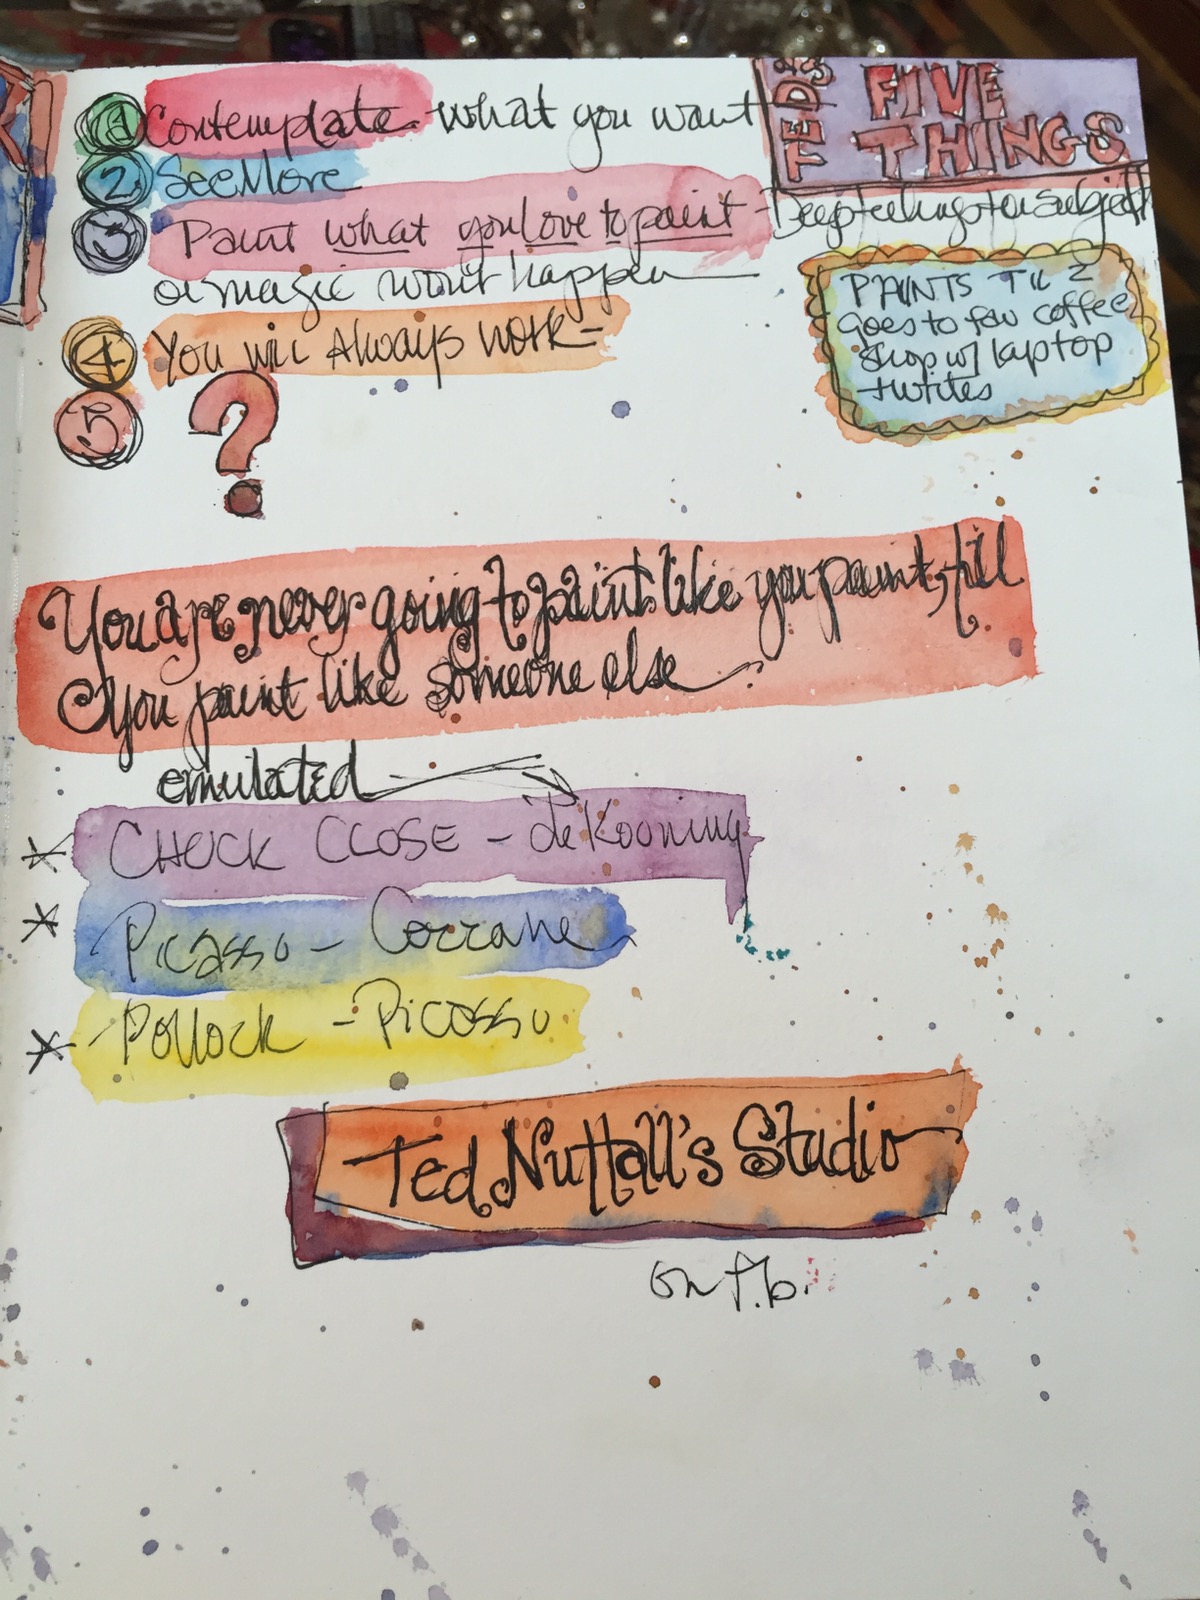 TED'S
FIVE
THINGS
1 Contemplate - what you want
2 See More
3 Paint what you love to paint - Deep feelings for subject
or magic won't happen
4 You will Always work -
5 ?
PAINTS TIL 2
Goes to fav coffee
shop w/ laptop
+ writes
You are never going to paint like you paint, till
you paint like someone else.
emulated
* CHUCK CLOSE - de Kooning
* Picasso - Cezzane
* Pollock - Picasso
Ted Nuttall's Studio
on f.b.